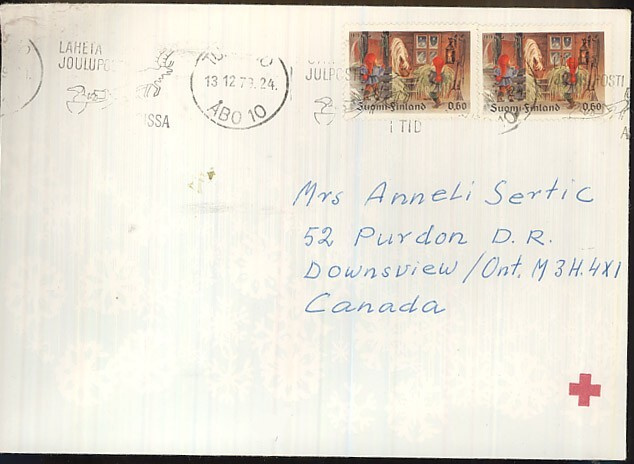 LÄHETÄ
JOULUPO
SSA
13.12.79.24.
ÅBO 10
JULPOST
I TID
POSTI
10
Suomi-Finland 0,60
Suomi-Finland 0,60
Mrs Anneli Sertic
52 Purdon D.R.
Downsview / Ont. M3H.4X1
Canada